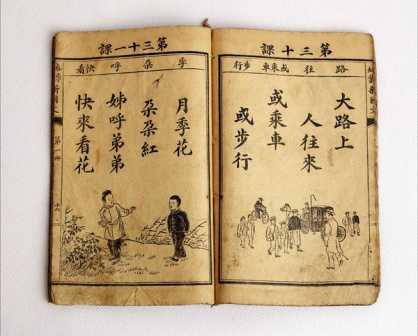 第三十課
路
往
或乘車
步行
大路上
人往來
或乘車
或步行
第三十一課
季
朵
呼
快看
月季花
朵朵紅
姊呼弟弟
快來看花